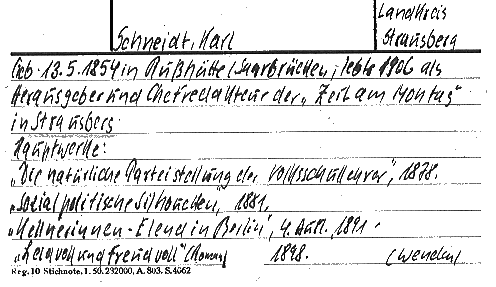 Landkreis
Schneidt, Karl
Strausberg
Geb. 13.5.1854 in Rußhütte/Saarbrücken, lebte 1906 als
Herausgeber und Chefredakteur der „Zeit am Montag“
in Strausberg
Hauptwerke:
„Die natürliche Parteistellung der Volksschullehrer“, 1878.
„Sozialpolitische Silhouetten“, 1881.
„Kellnerinnen-Elend in Berlin“, 4. Aufl. 1891.
„Leidvoll und freudvoll“ (Roman) 1898. (Wendon)
Reg. 10 Stichnote. I. 50. 232000, A. 803. S. 4062